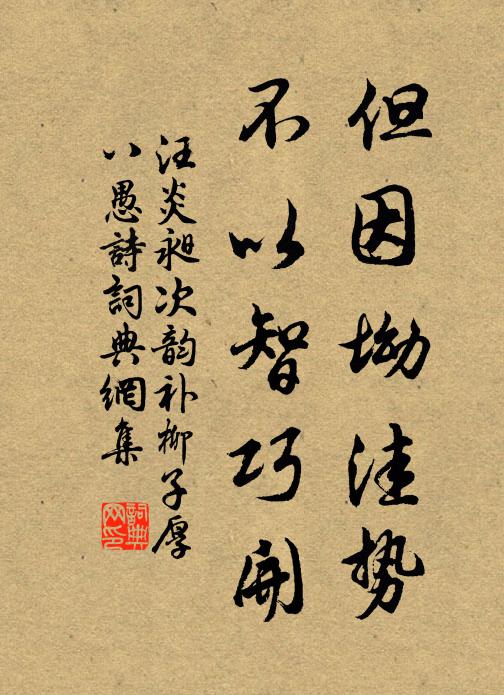 但因坳洼势
不以智巧開
汪炎昶次韵补柳子厚
八愚詩詞典網集
詞典网印